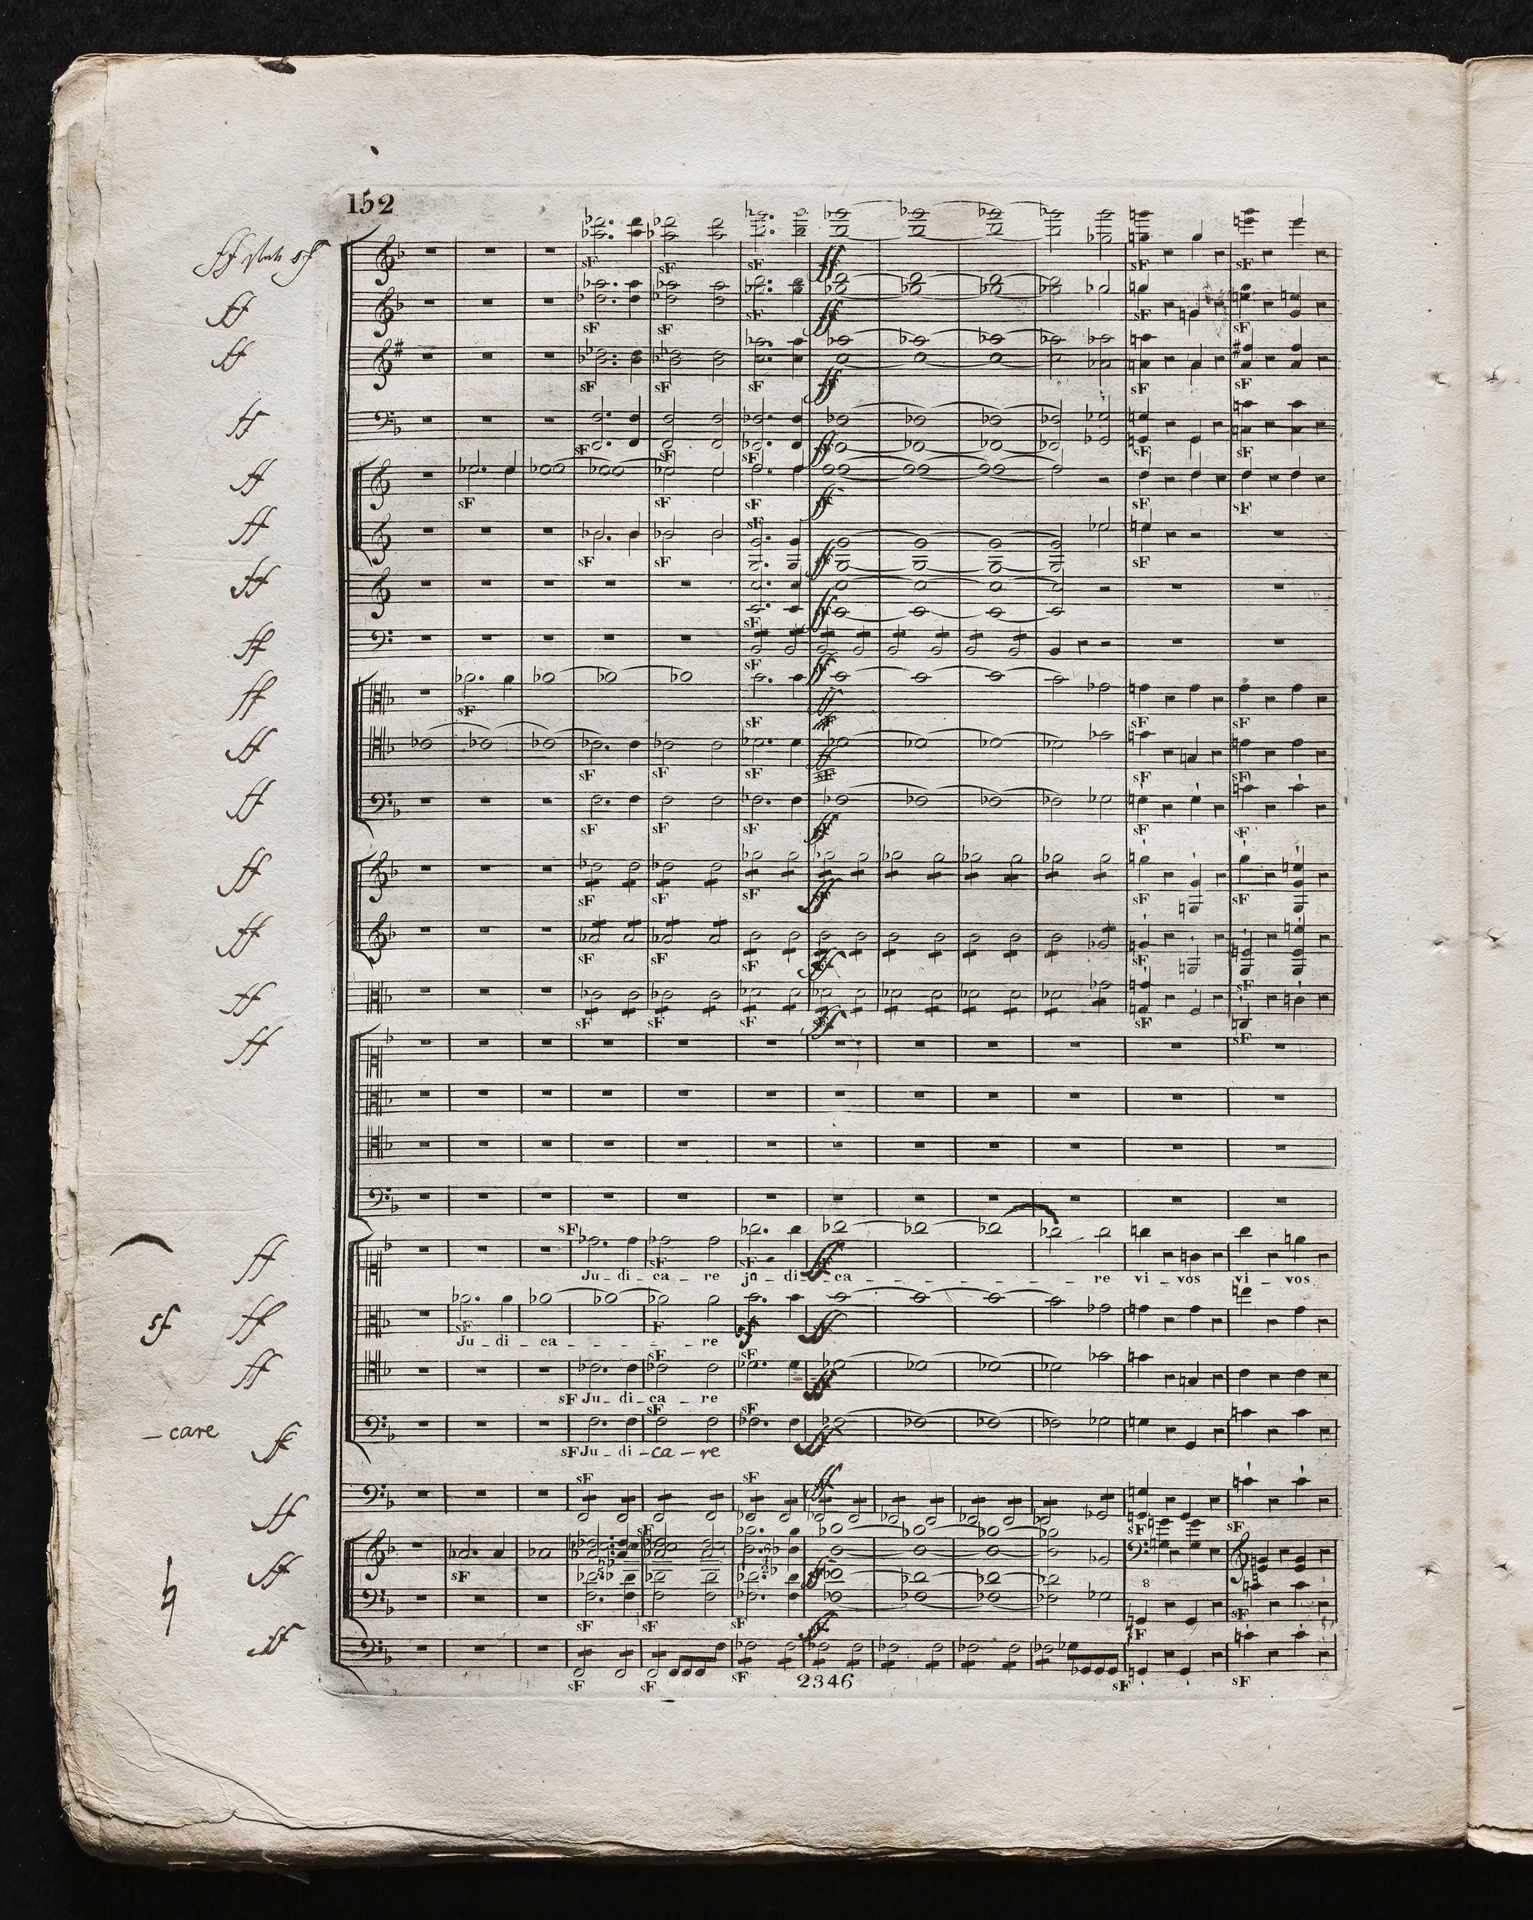 152
ff statt sf
ff
ff
ff
ff
ff
ff
ff
ff
ff
ff
ff
ff
ff
ff
sF sF sF ff sF sF
sF sF sF ff sF sF
sF sF sF ff sF sF
sF sF sF ff sF sF
sF sF sF ff sF sF
sF sF sF ff sF
sF ff
sF ff
sF sF ff sF sF
sF sF sF ff sF sF
sF sF sF ff sF sF
sF sF sF ff sF sF
sF sF sF ff sF sF
sF sF sF ff sF sF
ff
sF sF sF ff
Ju_di_ca_re ju_di_ca_re vi_vos vi_vos
sf ff
sF F sf ff
Ju_di_ca_re
ff
sF sF sF ff
Ju_di_ca_re
_care ff
sF sF sF ff
Ju_di_ca_re
ff
sF sF ff sF sF
ff
sF sF ff
8
ff
sF sF sF ff sF sF
sF sF sF sF sF
2346